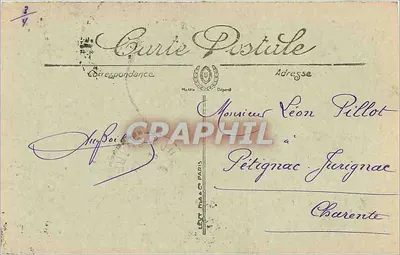 3/4
Carte Postale
Correspondance
Adresse
Modèle Déposé
Monsieur Léon Pillot
à
Pétignac-Jurignac
Charente
CPAPHIL
LÉVY FILS & Cie PARIS